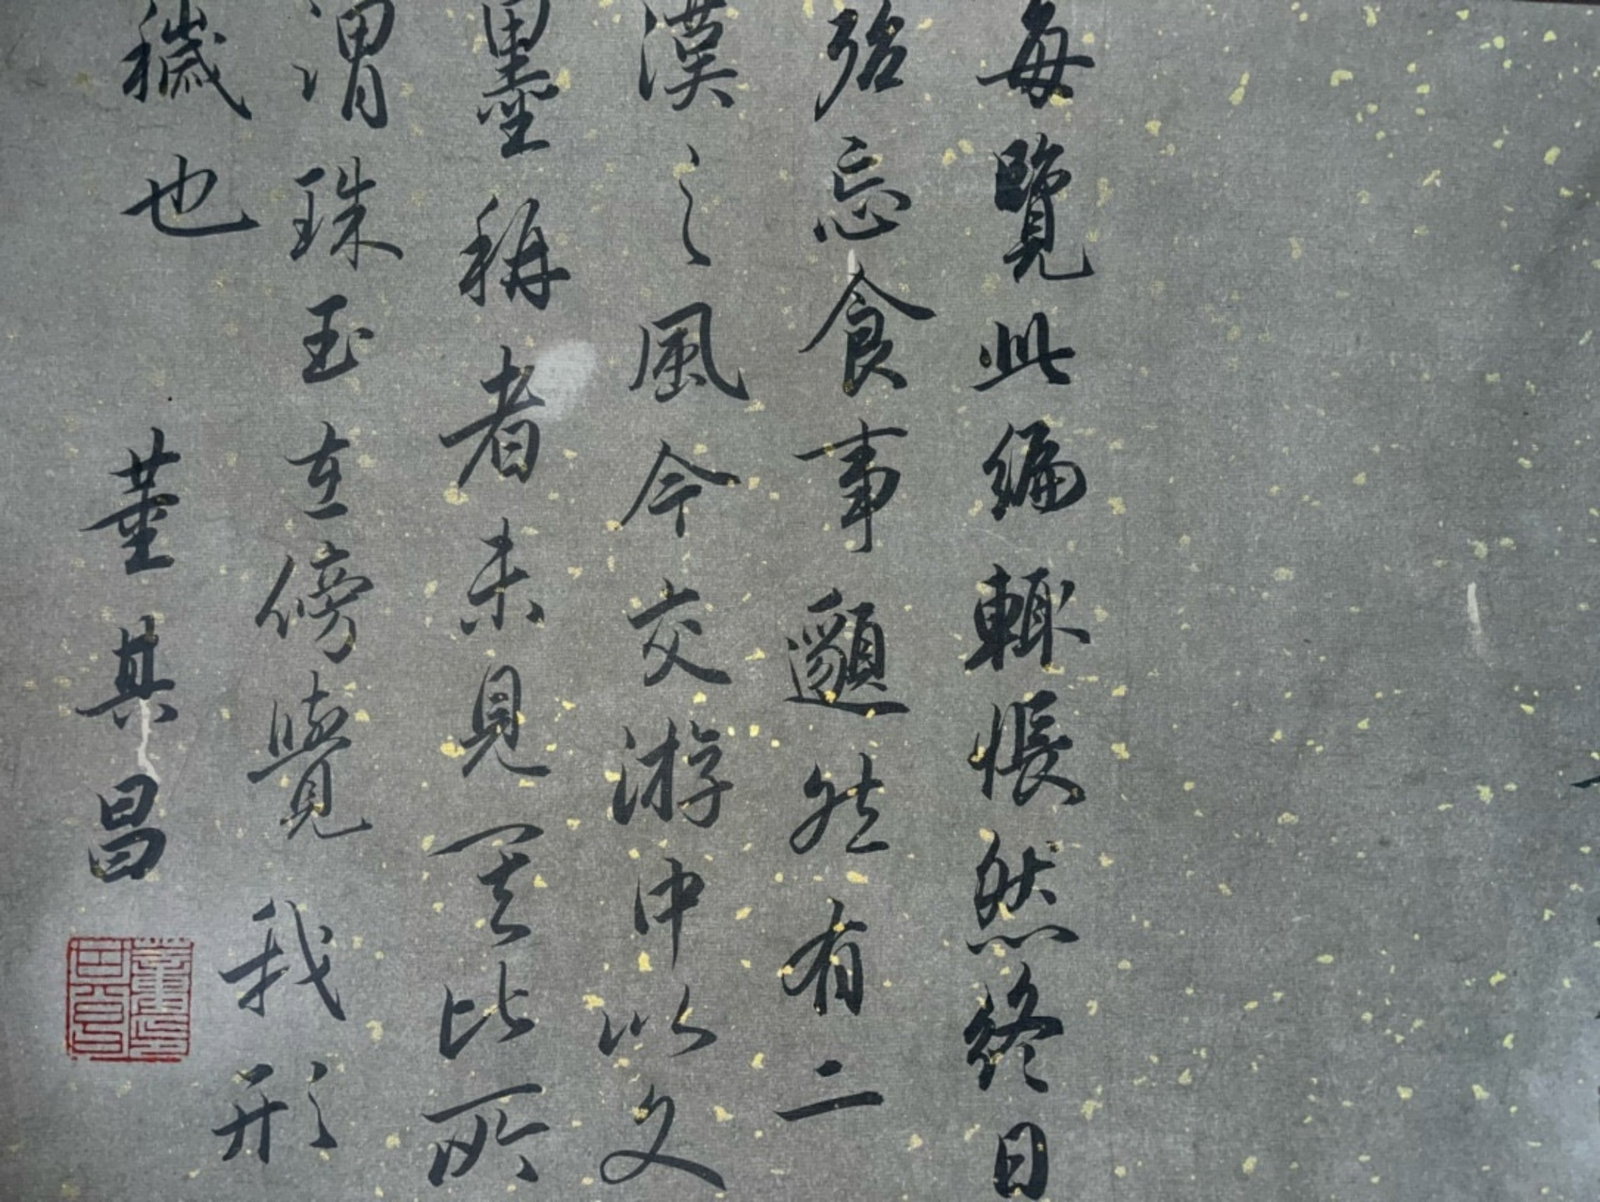 每覽此編輒悵然終日
弥忘食事邈然有二
漢之風今交游中以文
墨稱者未見其比所
謂珠玉在傍覺我形
穢也
董其昌